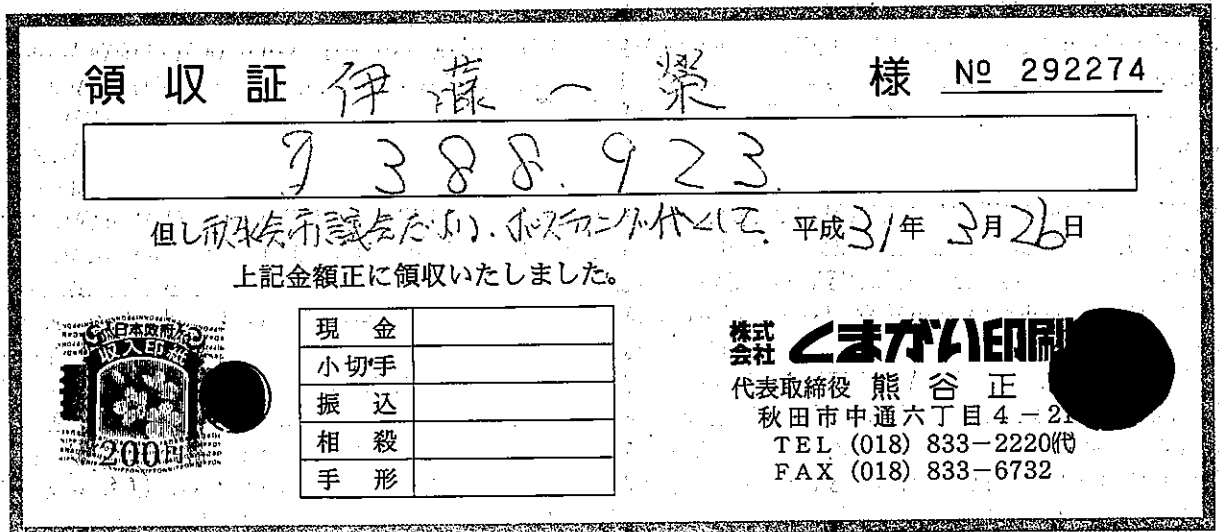 領収証 伊藤一榮 様 Nº 292274
¥388.923.
但し市議会だより、ポスティング代として、平成31年3月26日
上記金額正に領収いたしました。
日本政府
収入印紙
200円
現金
小切手
振込
相殺
手形
株式会社 くまがい印刷
代表取締役 熊谷正
秋田市中通六丁目4-21
TEL (018) 833-2220㈹
FAX (018) 833-6732